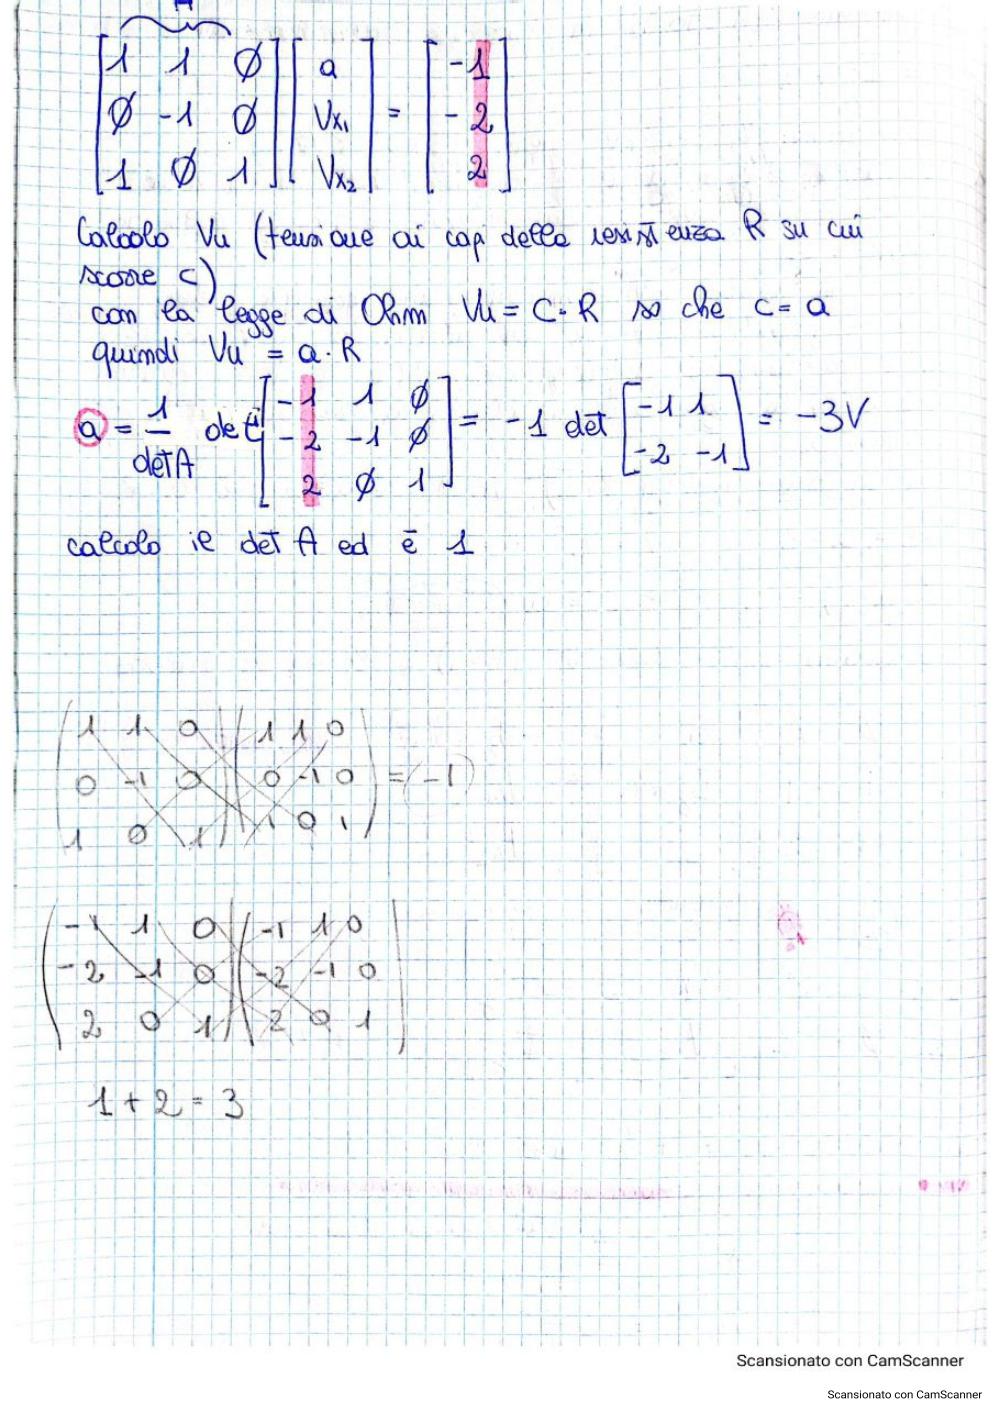 A
[ 1 1 0 ; 0 -1 0 ; 1 0 1 ] [ a ; Vx1 ; Vx2 ] = [ -1 ; -2 ; 2 ]
Calcolo Vu (tensione ai cap della resistenza R su cui
scorre c)
con la legge di Ohm Vu = C · R so che c = a
quindi Vu = a · R
a = 1/detA det [ -1 1 0 ; -2 -1 0 ; 2 0 1 ] = -1 det [ -1 1 ; -2 -1 ] = -3V
calcolo il det A ed è 1
( 1 1 0 | 1 1 0 ; 0 -1 0 | 0 -1 0 ; 1 0 1 | 1 0 1 ) = (-1)
( -1 1 0 | -1 1 0 ; -2 -1 0 | -2 -1 0 ; 2 0 1 | 2 0 1 )
1 + 2 = 3
Scansionato con CamScanner
Scansionato con CamScanner